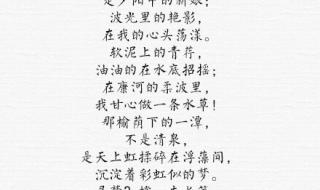 是夕阳中的新娘；
波光里的艳影，
在我的心头荡漾。
软泥上的青荇，
油油的在水底招摇；
在康河的柔波里，
我甘心做一条水草！
那榆荫下的一潭，
不是清泉，
是天上虹揉碎在浮藻间，
沉淀着彩虹似的梦。